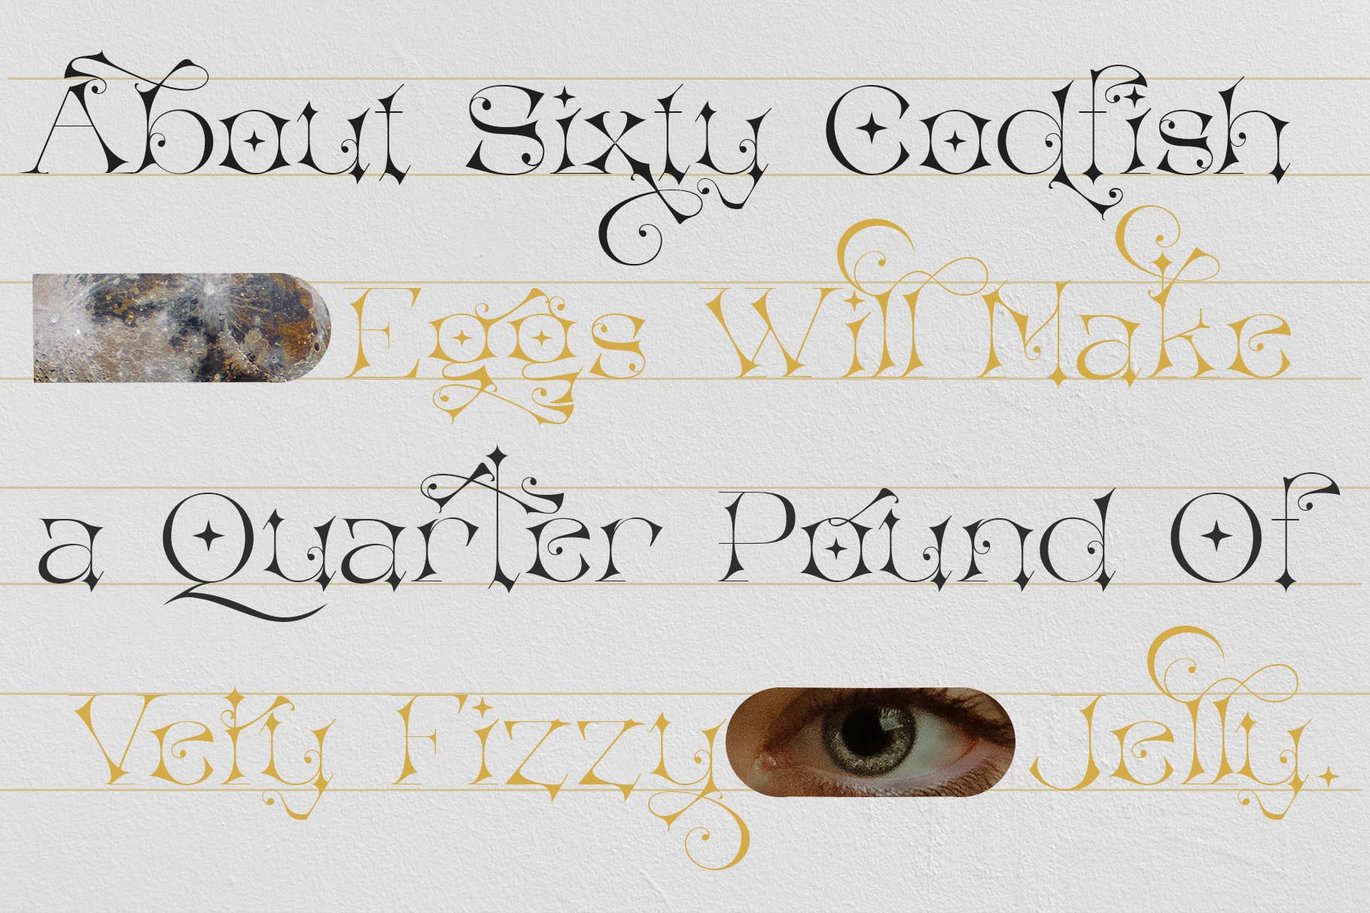 About Sixty Codfish
Eggs Will Make
a Quarter Pound Of
Very Fizzy Jelly.